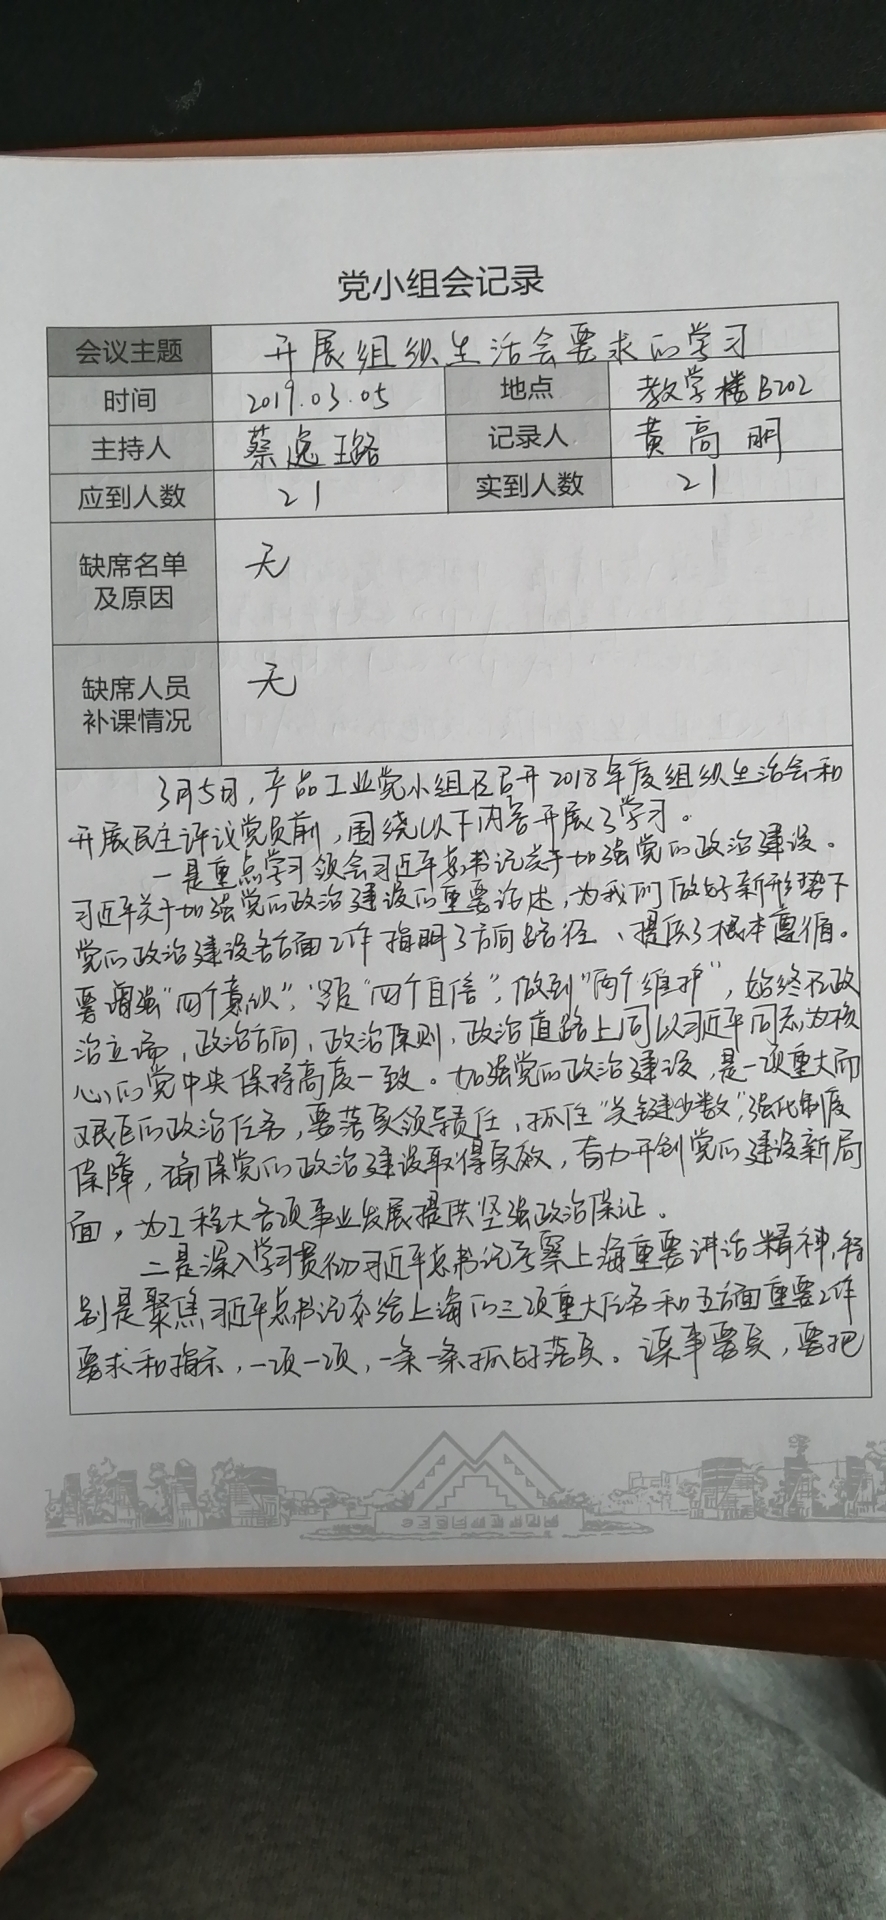 党小组会记录
会议主题 开展组织生活会要求的学习
时间 2019.03.05 地点 教学楼B202
主持人 蔡逸璐 记录人 黄高明
应到人数 21 实到人数 21
缺席名单及原因 无
缺席人员补课情况 无
3月5日,产品工业党小组在召开2018年度组织生活会和
开展民主评议党员前,围绕以下内容开展了学习。
一是重点学习领会习近平总书记关于加强党的政治建设。
习近平关于加强党的政治建设的重要论述,为我们做好新形势下
党的政治建设各方面工作指明了方向路径、提供了根本遵循。
要增强“四个意识”,坚定“四个自信”,做到“两个维护”,始终在政
治立场,政治方向,政治原则,政治道路上同以习近平同志为核
心的党中央保持高度一致。加强党的政治建设,是一项重大而
艰巨的政治任务,要落实领导责任,抓住“关键少数”,强化制度
保障,确保党的政治建设取得实效,奋力开创党的建设新局
面,为工程大各项事业发展提供坚强政治保证。
二是深入学习贯彻习近平总书记考察上海重要讲话精神,特
别是聚焦习近平总书记交给上海的三项重大任务和五方面重要工作
要求和指示,一项一项,一条一条抓好落实。谋事要实,要把